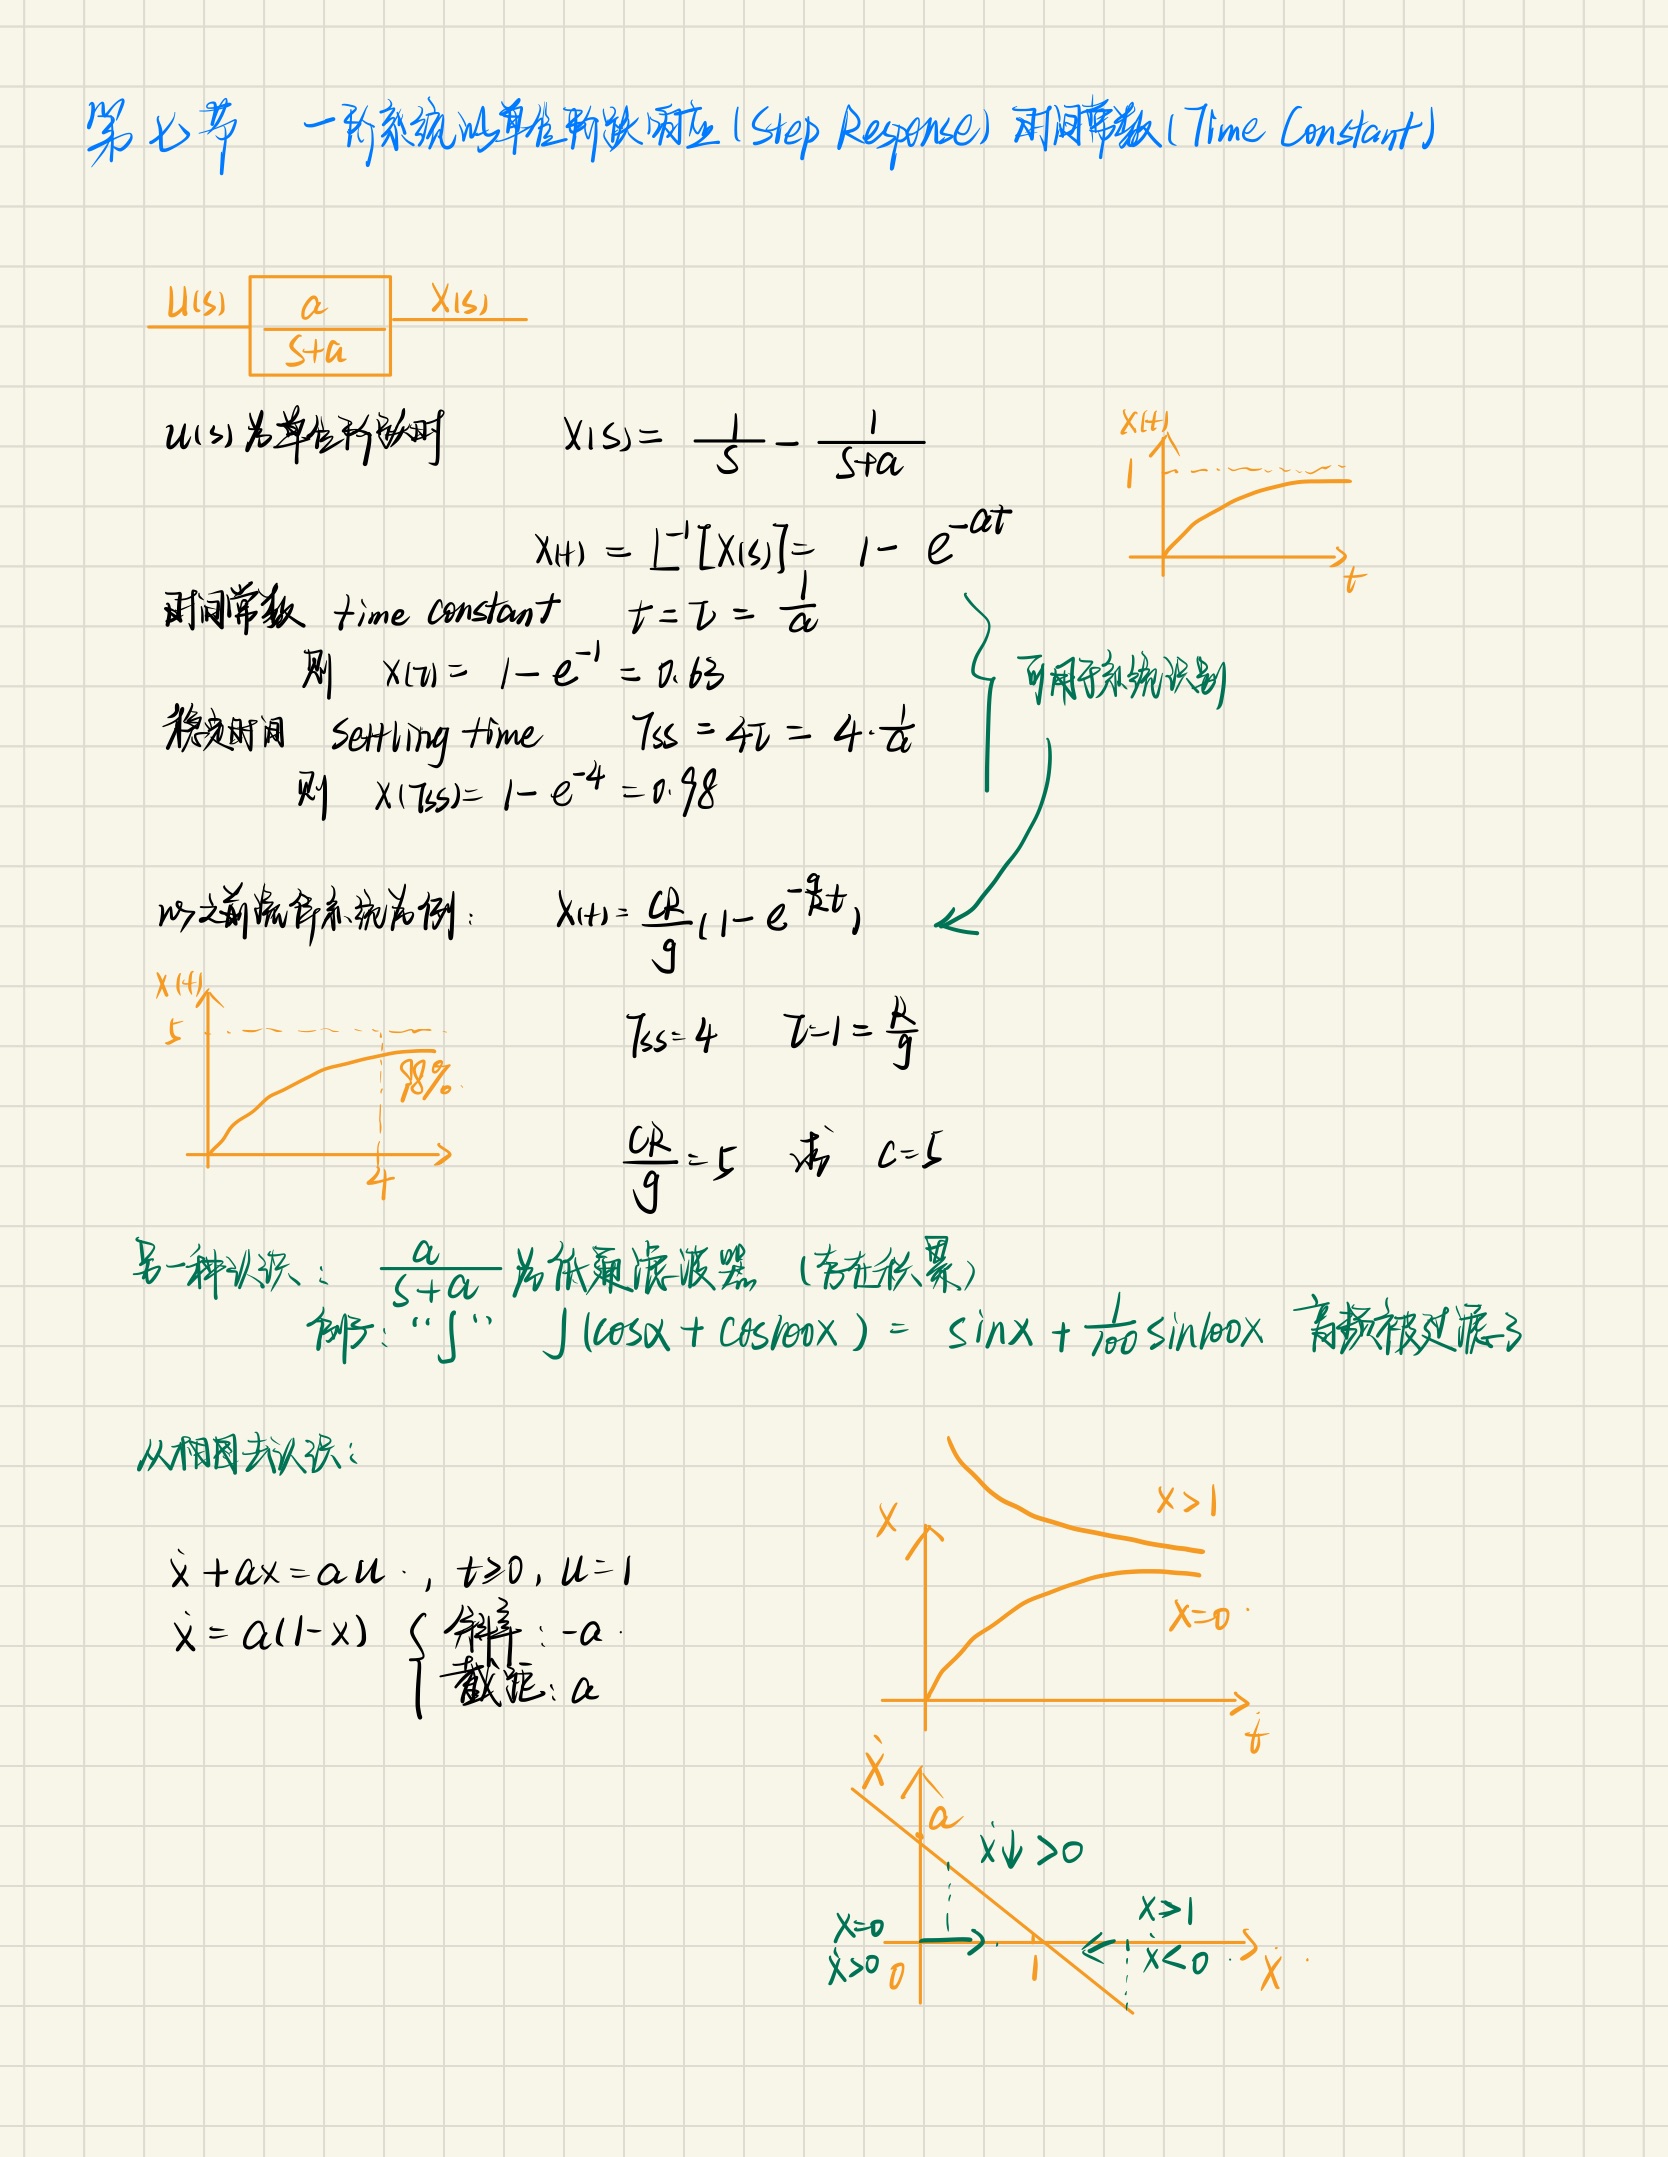 第七节 一阶系统的单位阶跃响应(Step Response) 时间常数(Time Constant)
U(s) a/(s+a) X(s)
U(s)为单位阶跃时 X(s) = 1/s - 1/(s+a)
X(t)
1
t
X(t) = L⁻¹[X(s)] = 1 - e^(-at)
时间常数 time constant t = τ = 1/a
则 X(τ) = 1 - e⁻¹ = 0.63
可用于系统识别
稳定时间 Settling time Tss = 4τ = 4·1/a
则 X(Tss) = 1 - e⁻⁴ = 0.98
以之前流体系统为例: X(t) = CR/g (1 - e^(-g/R t))
X(t)
5
98%
4
Tss=4 τ=1=R/g
CR/g = 5 求 C=5
另一种认识: a/(s+a) 为低通滤波器 (存在积累)
例子: “∫” ∫(cosx + cos100x) = sinx + 1/100 sin100x 高频被过滤了
从相图去认识:
X
X>1
X=0
t
ẋ + ax = au, t≥0, u=1
ẋ = a(1-x) { 斜率: -a
截距: a
ẋ
a
ẋ↓ >0
X=0
ẋ>0
0
1
X>1
ẋ<0
X